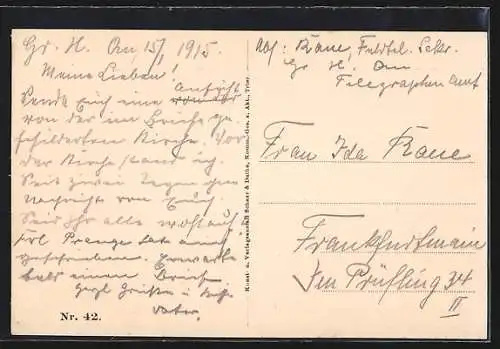 Gr. H. Qu 15/1 1915.
Meine Lieben!
Sende Euch eine Ansicht
von der im Briefe ge-
schilderten Kirche. Vor
der Kirche stand ich.
Seit zwei Tagen
Nachricht von Euch.
Seid Ihr alle wohlauf.
Frl Prange hat auch
geschrieben. Erwarte
bald einen Brief
Herzl Grüße u.
Vater.
Nr. 42.
Kunst- u. Verlagsanstalt Schaar & Dathe, Komm.-Ges. a. Akt., Trier.
Abs: Kaue, Feldtel. Sekr.
Gr H. Qu
Telegraphen Amt
Frau Ida Kaue
Frankfurtmain
Im Prüfling 34
II